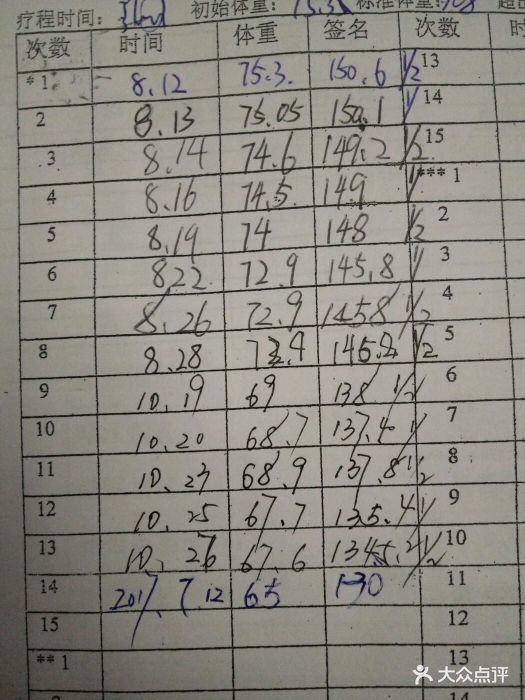 疗程时间： 初始体重：75.3 标准体重： 超
次数 时间 体重 签名 次数 时
*1 8.12 75.3. 150.6 1/2 13
2 8.13 75.05 150.1 14
3 8.14 74.6 149.2 1/2 15
4 8.16 74.5 149 *** 1
5 8.19 74 148 1/2 2
6 8.22 72.9 145.8 3
7 8.26 72.9 145.8 1/2 4
8 8.28 145.8 1/2 5
9 10.19 69 138 1/2 6
10 10.20 68.7 137.4 7
11 10.23 68.9 137.8 1/2 8
12 10.25 67.7 135.4 9
13 10.26 67.6 135.2 1/2 10
14 2017.7.12 65 130 11
15 12
** 1 13
14
大众点评